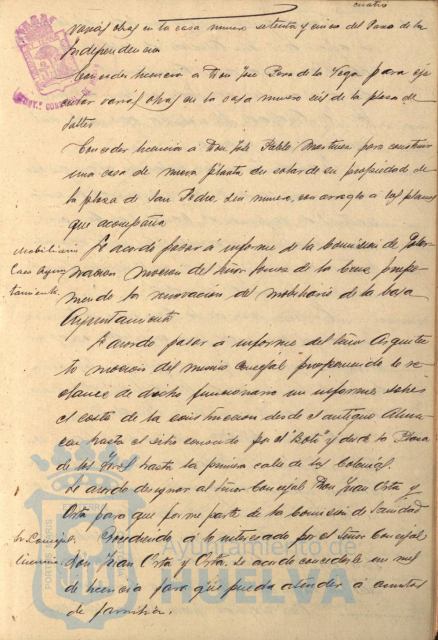 cuatro
varias obras en la casa número setenta y cinco del Paseo de la
Independencia
Conceder licencia a Don José Pérez de la Vega para eje-
cutar varias obras en la casa número seis de la plaza de
Conceder licencia a Don José Pablo Martínez para construir
una casa de nueva planta en solar de su propiedad de
la plaza de San Pedro, sin número, con arreglo a los planos
que acompaña
Mobiliario
Casa Ayun-
tamiento.
Se acordó pasar á informe de la Comisión de Gober-
nación moción del Señor Gómez de la Cruz propo-
niendo la renovación del mobiliario de la Casa
Ayuntamiento
Se acordó pasar á informe del Señor Arquitec-
to moción del mismo Concejal proponiendo se re-
de dicho funcionario un informe sobre
el costo de la construcción desde el antiguo
hasta el sitio conocido por el "Boto" y desde la Plaza
de los hasta la primera calle de la Colonial.
Se acordó designar al Señor Concejal Don Juan Orta y
Orta para que forme parte de la Comisión de Sanidad
Sr. Concejal
licencia
Accediendo á lo interesado por el Señor Concejal
Don Juan Orta y Orta, se acordó concederle un mes
de licencia para que pueda atender á asuntos
de familia.
Ayuntamiento de
HUELVA